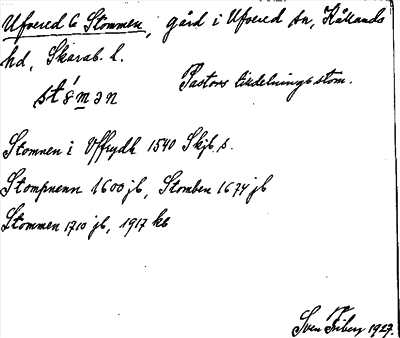 Ufvered b Stommen, gård i Ufvered sn, Kållands
hd, Skarab. l.
Pastors tilldelningsstom.
stómən
Stomnen i Uffrydh 1540 Skjb s.
Stompnenn 1600 jb, Stomben 1674 jb
Stommen 1710 jb, 1917 kb
Sven Friberg 1927.